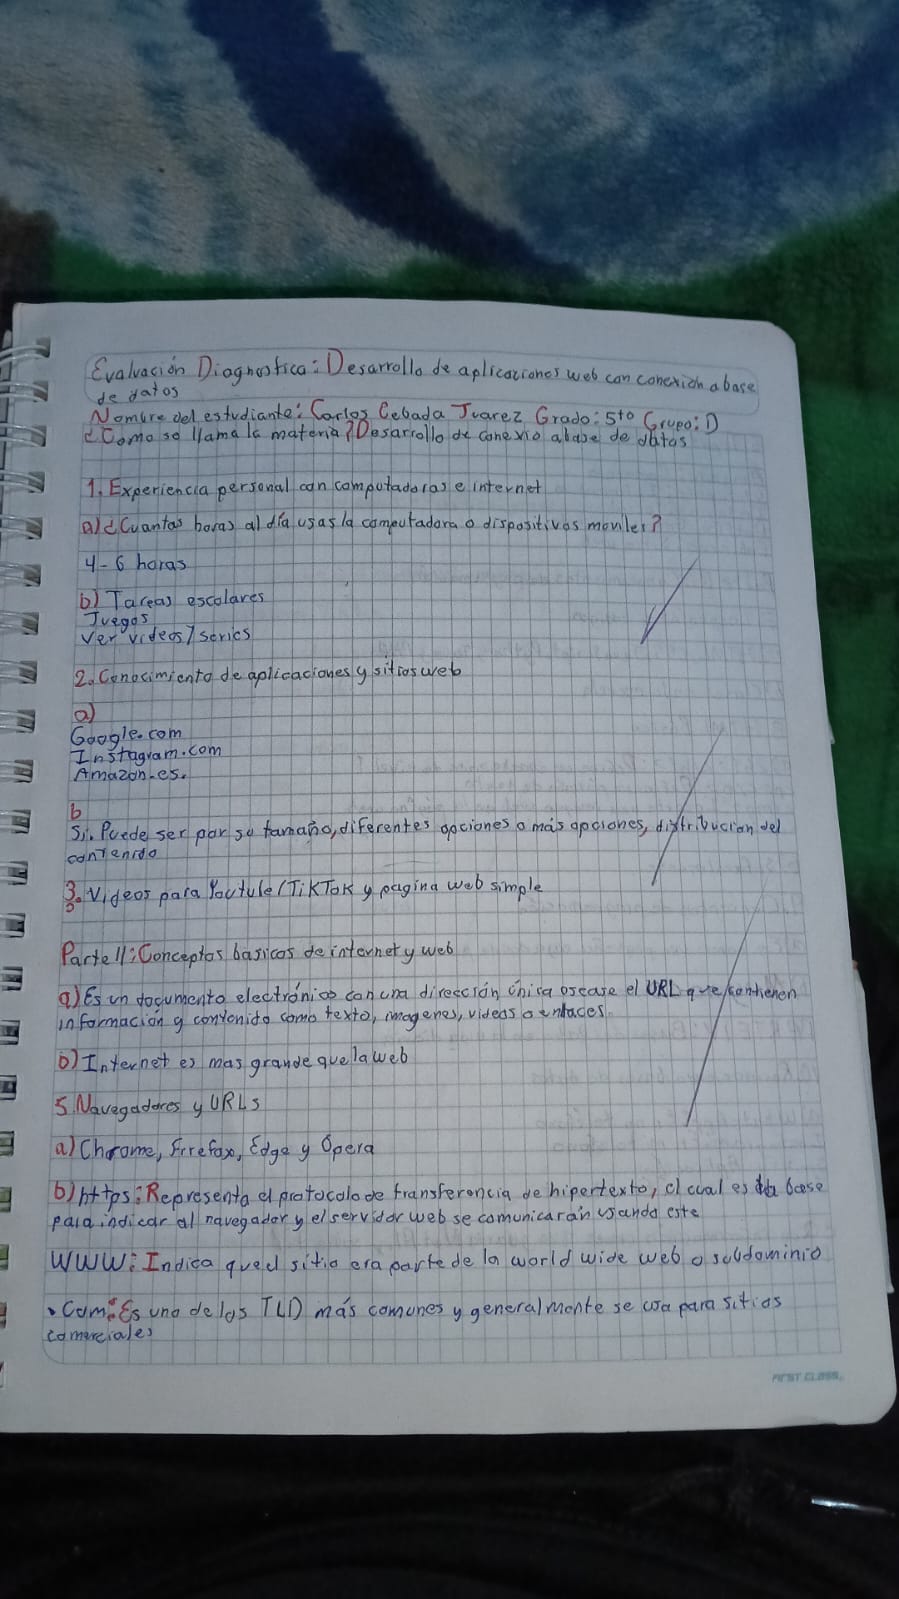 Evalvación Diagnostica: Desarrollo de aplicaciones web con conexión a base
de datos
Nombre del estudiante: Carlos Cebada Juarez Grado: 5to Grupo: D
¿Como se llama la materia? Desarrollo de conexio a base de datos
1. Experiencia personal con computadoras e internet
a) ¿Cuantas horas al día usas la computadora o dispositivos moviles?
4-6 horas
b) Tareas escolares
Juegos
Ver videos/series
2. Conocimiento de aplicaciones y sitios web
a)
Google.com
Instagram.com
Amazon.es.
b
Si. Puede ser por su tamaño, diferentes opciones o más opciones, distribucion del
contenido
3. Videos para Youtube/TikTok y pagina web simple
Parte II: Conceptos basicos de internet y web
a) Es un documento electrónico con una dirección única osease el URL que contienen
información y contenido como texto, imagenes, videos o enlaces.
b) Internet es mas grande que la web
5. Navegadores y URLs
a) Chrome, Firefox, Edge y Opera
b) https: Representa el protocolo de transferencia de hipertexto, el cual es la base
para indicar al navegador y el servidor web se comunicarán usando este
WWW: Indica que el sitio era parte de la world wide web o subdominio
.Com: Es uno de los TLD más comunes y generalmente se usa para sitios
comerciales
FIRST CLASS